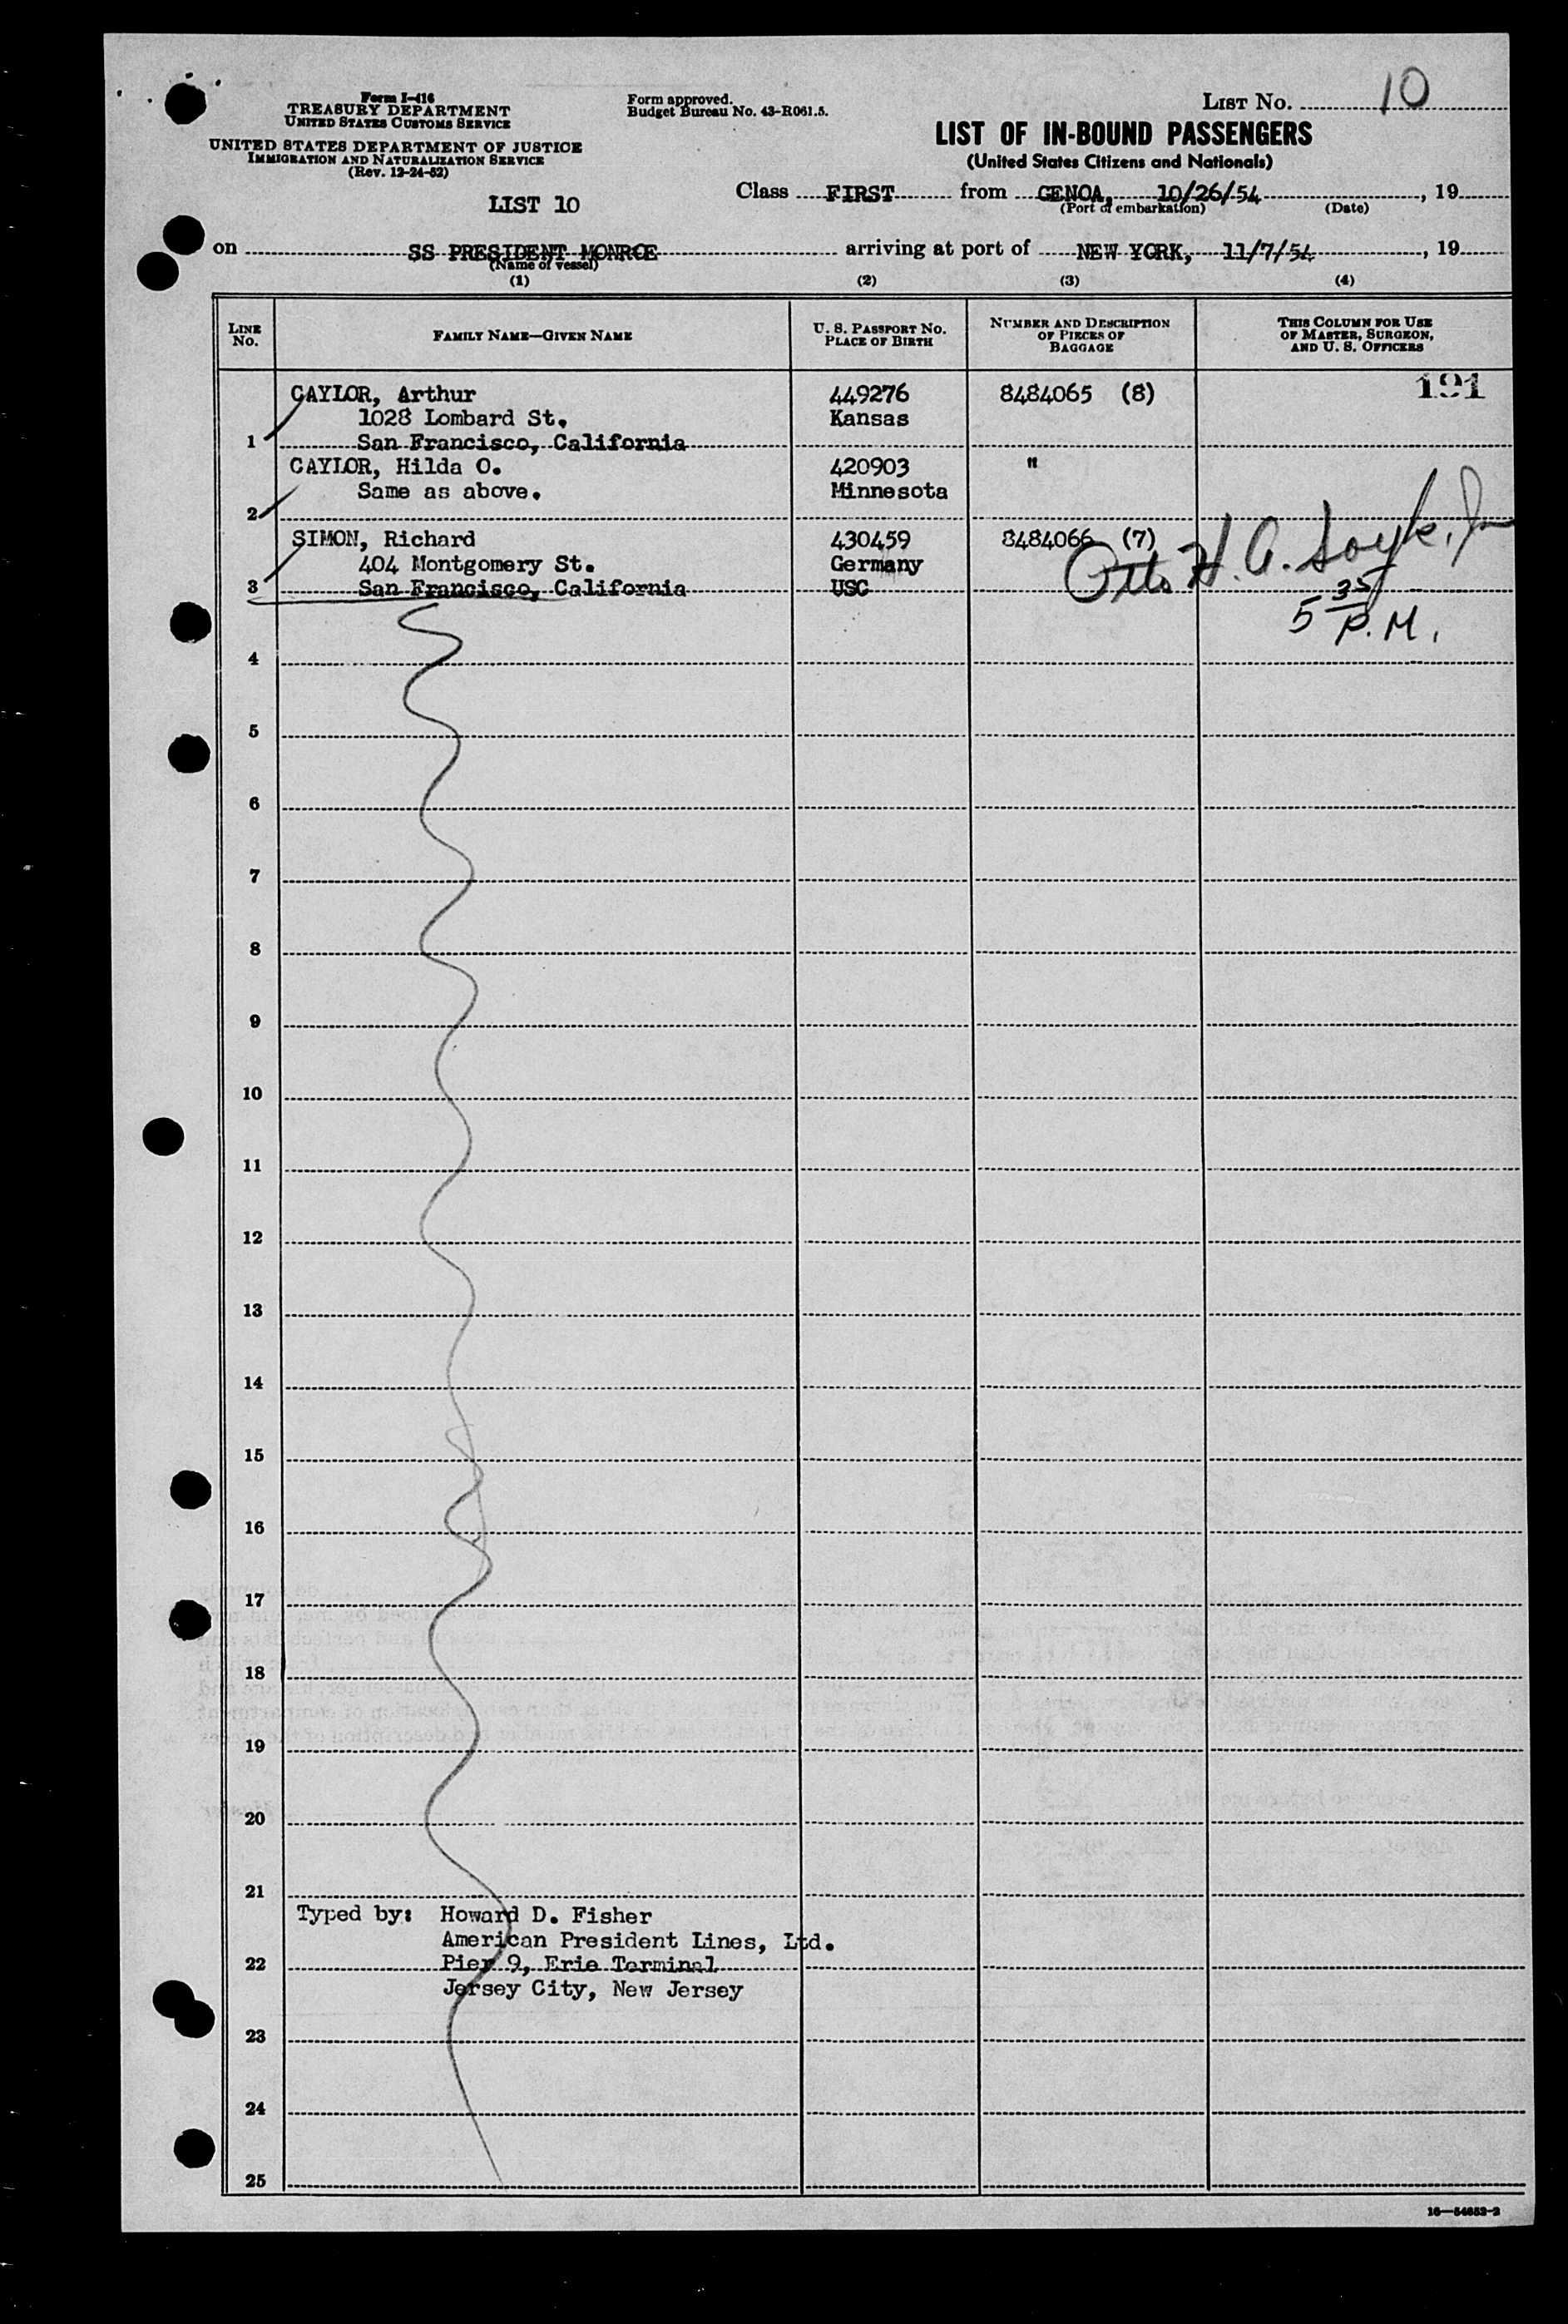 Form I-416
TREASURY DEPARTMENT
UNITED STATES CUSTOMS SERVICE
UNITED STATES DEPARTMENT OF JUSTICE
IMMIGRATION AND NATURALIZATION SERVICE
(Rev. 12-24-52)
Form approved.
Budget Bureau No. 43-R061.5.
LIST No. 10
LIST OF IN-BOUND PASSENGERS
(United States Citizens and Nationals)
LIST 10
Class FIRST from GENOA, 10/26/54, 19
(Port of embarkation) (Date)
on SS PRESIDENT MONROE arriving at port of NEW YORK, 11/7/54, 19
(Name of vessel)
(1) (2) (3) (4)
LINE No. FAMILY NAME—GIVEN NAME U. S. PASSPORT No. PLACE OF BIRTH NUMBER AND DESCRIPTION OF PIECES OF BAGGAGE THIS COLUMN FOR USE OF MASTER, SURGEON, AND U. S. OFFICERS
191
CAYLOR, Arthur 449276 8484065 (8)
1028 Lombard St. Kansas
1 San Francisco, California
CAYLOR, Hilda O. 420903 "
Same as above. Minnesota
2
SIMON, Richard 430459 8484066 (7)
404 Montgomery St. Germany
3 San Francisco, California USC
Otto H. A.
5 35 P.M.
4
5
6
7
8
9
10
11
12
13
14
15
16
17
18
19
20
21
Typed by: Howard D. Fisher
American President Lines, Ltd.
22 Pier 9, Erie Terminal
Jersey City, New Jersey
23
24
25
16—54652-2